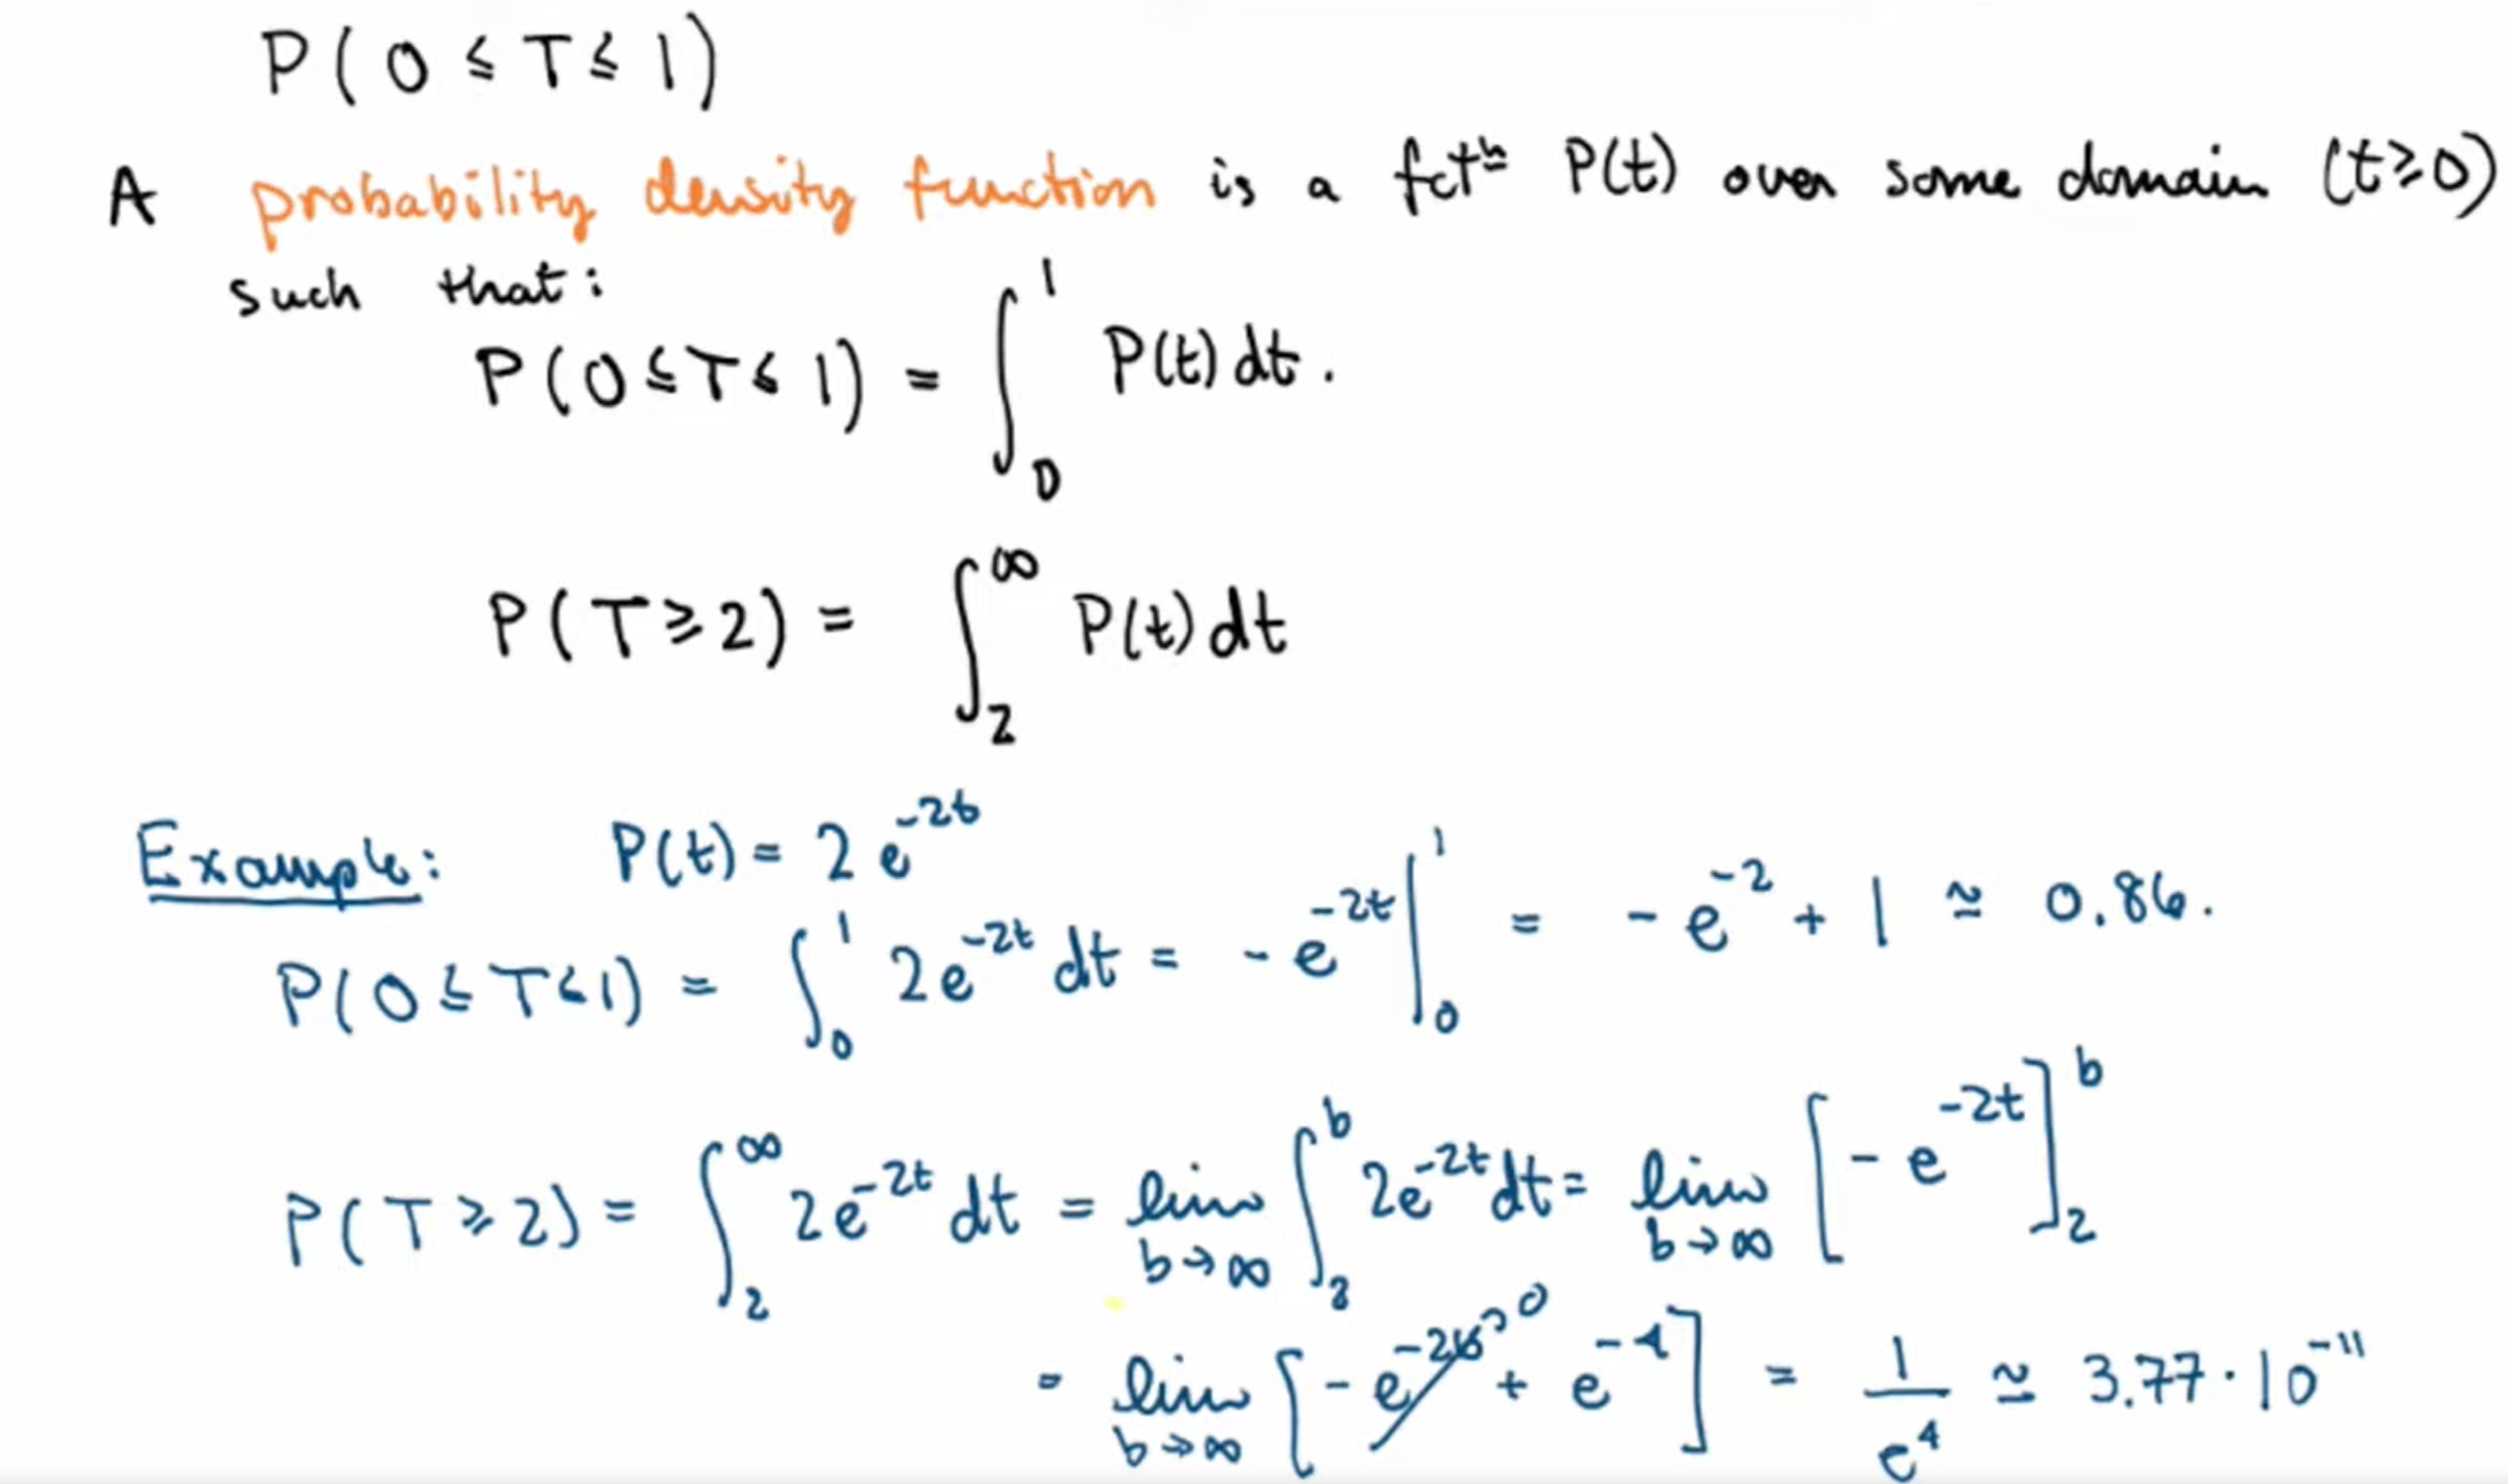 P(0 ≤ T ≤ 1)
A probability density function is a fctⁿ P(t) over some domain (t ≥ 0)
such that:
P(0 ≤ T ≤ 1) = ∫₀¹ P(t) dt.
P(T ≥ 2) = ∫₂^∞ P(t) dt
Example: P(t) = 2e^{-2t}
P(0 ≤ T ≤ 1) = ∫₀¹ 2e^{-2t} dt = -e^{-2t} |₀¹ = -e^{-2} + 1 ≃ 0.86.
P(T ≥ 2) = ∫₂^∞ 2e^{-2t} dt = lim_{b→∞} ∫₂^b 2e^{-2t} dt = lim_{b→∞} [-e^{-2t}]₂^b
= lim_{b→∞} [-e^{-2b}→0 + e^{-4}] = 1/e⁴ ≃ 3.77·10^{-11}